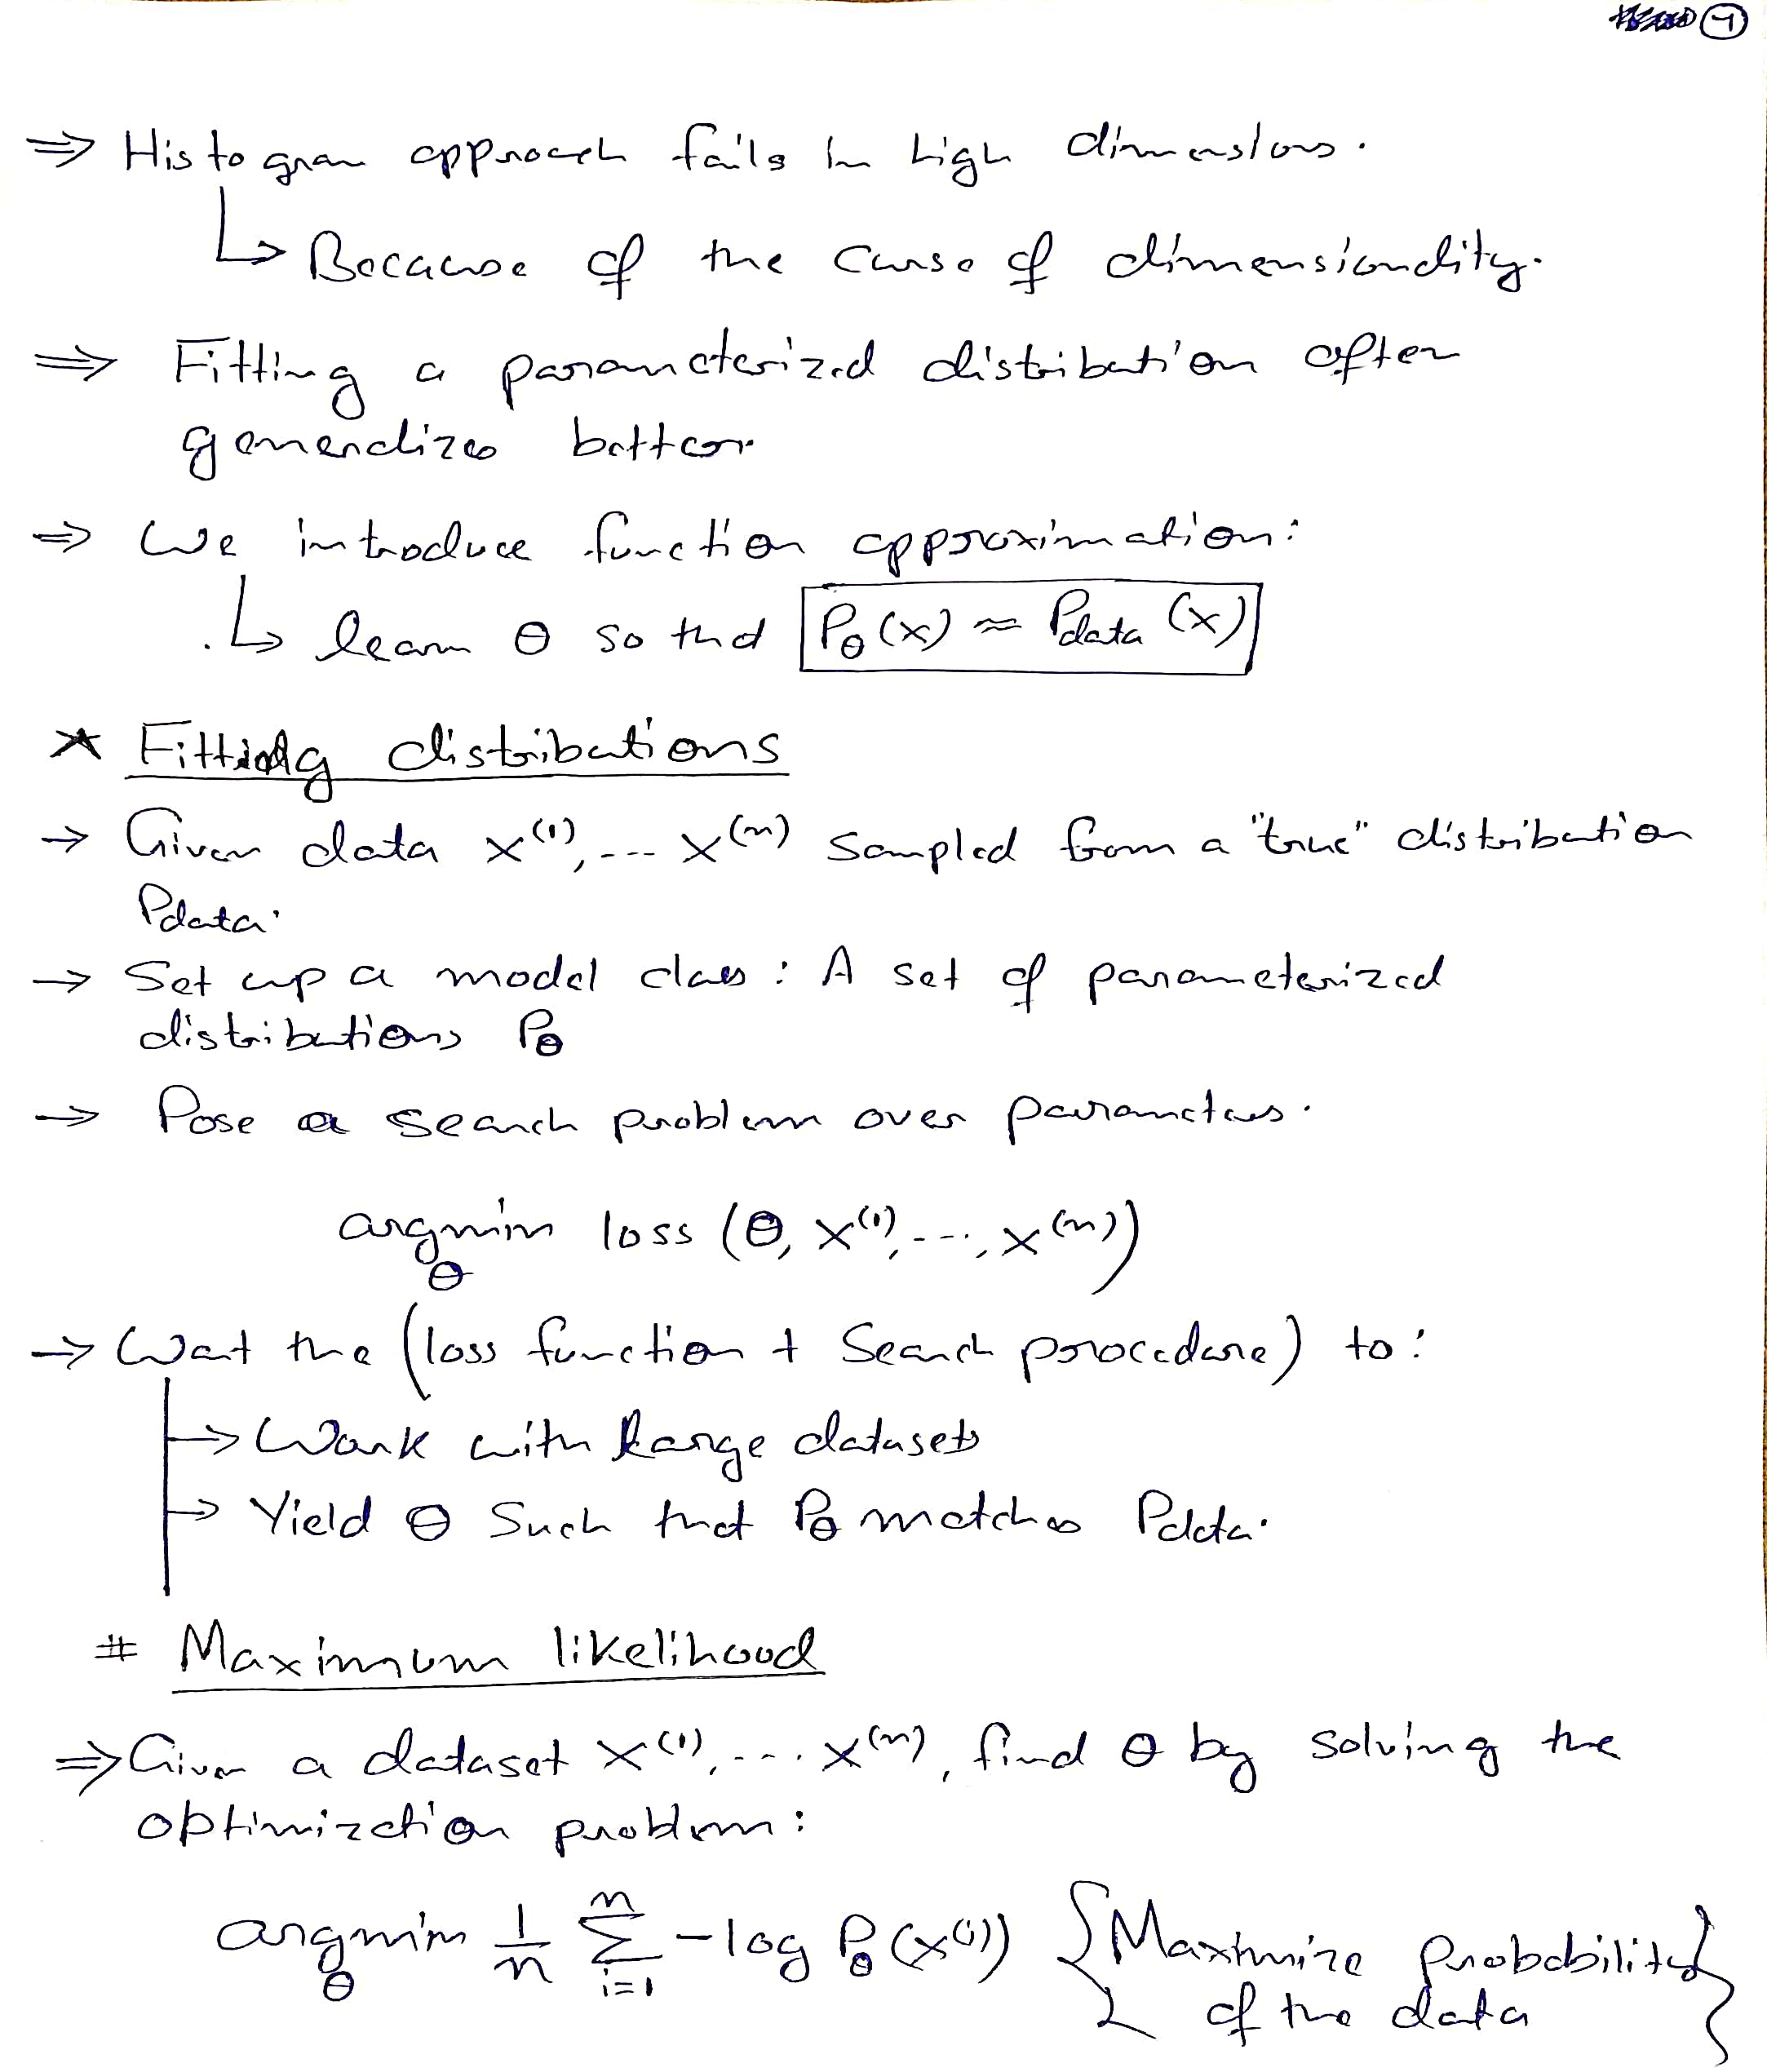 ④
⇒ Histogram approach fails in high dimensions.
↳ Because of the curse of dimensionality.
⇒ Fitting a parameterized distribution often
generalizes better
⇒ We introduce function approximation:
↳ learn θ so that P_θ(x) ≈ P_data (x)
* Fitting distributions
→ Given data x^(1), --- x^(n) sampled from a "true" distribution
P_data.
→ Set up a model class : A set of parameterized
distributions P_θ
→ Pose a search problem over parameters.
argmin_θ loss (θ, x^(1), ---, x^(n))
→ Want the (loss function + Search procedure) to:
→ Work with large datasets
→ Yield θ Such that P_θ matches P_data.
# Maximum likelihood
⇒ Given a dataset x^(1), --- x^(n), find θ by solving the
optimization problem:
argmin_θ 1/n Σ_{i=1}^{n} -log P_θ(x^(i)) {Maximize probability
of the data}